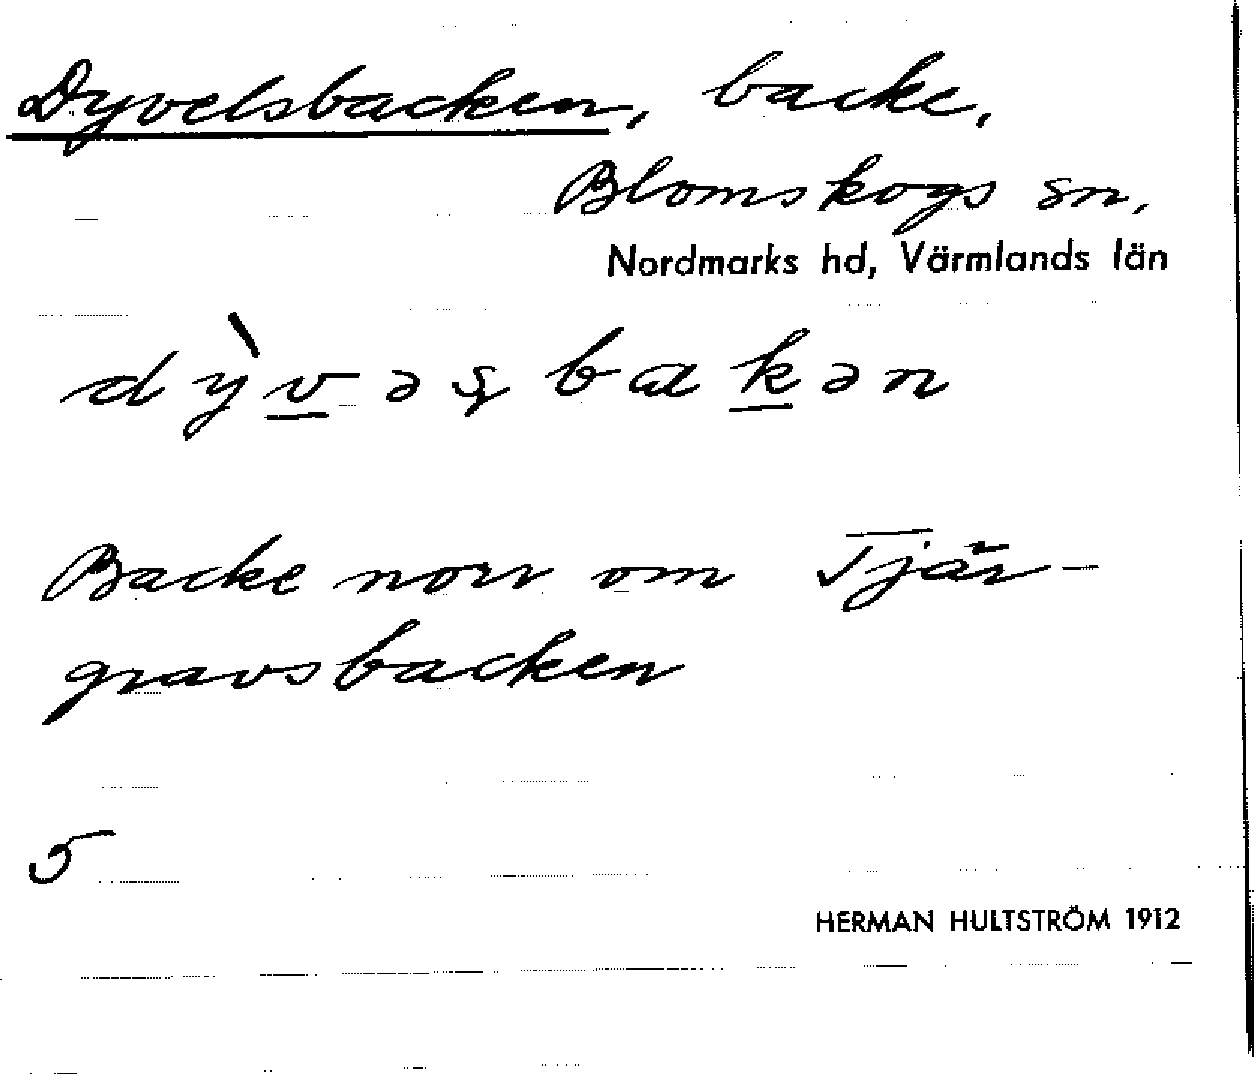 Dyvelsbacken, backe,
Blomskogs sn,
Nordmarks hd, Värmlands län
dỳvəʂbakən
Backe norr om Tjär-
gravsbacken
5
HERMAN HULTSTRÖM 1912